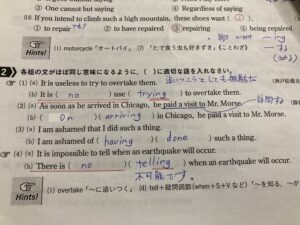 3 One cannot say 4 Regardless of saying
(11) If you intend to climb such a high mountain, these shoes want ( 2 ).
1 to repair 2 to have repaired 3 repairing 4 being repaired
(1) motorcycle「オートバイ」 (7)「たで食う虫も好きずき。(ことわざ)
Hints!
2 各組の文がほぼ同じ意味になるように,( )に適切な語を入れなさい。
(1) (a) It is useless to try to overtake them. 追いつこうとしても無駄だ
(b) It is ( no ) use ( trying ) to overtake them.
(2) (a) As soon as he arrived in Chicago, he paid a visit to Mr. Morse.
(b) ( On )( arriving ) in Chicago, he paid a visit to Mr. Morse.
(3) (a) I am ashamed that I did such a thing.
(b) I am ashamed of ( having )( done ) such a thing.
(4) (a) It is impossible to tell when an earthquake will occur.
(b) There is ( no )( telling ) when an earthquake will occur.
不可能です。
Hints! (1) overtake「〜に追いつく」 (4) tell+疑問詞節(when+S+V など)「〜を知る、〜が